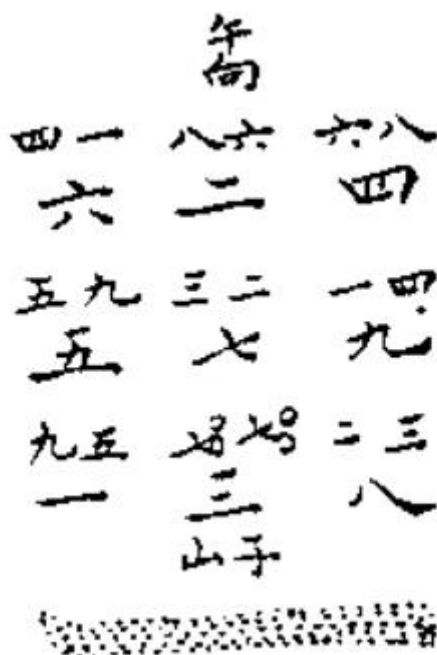 午向
四一 八六 六八
六 二 四
五九 三二 一四
五 七 九
九五 七七 二三
一 三 八
山子